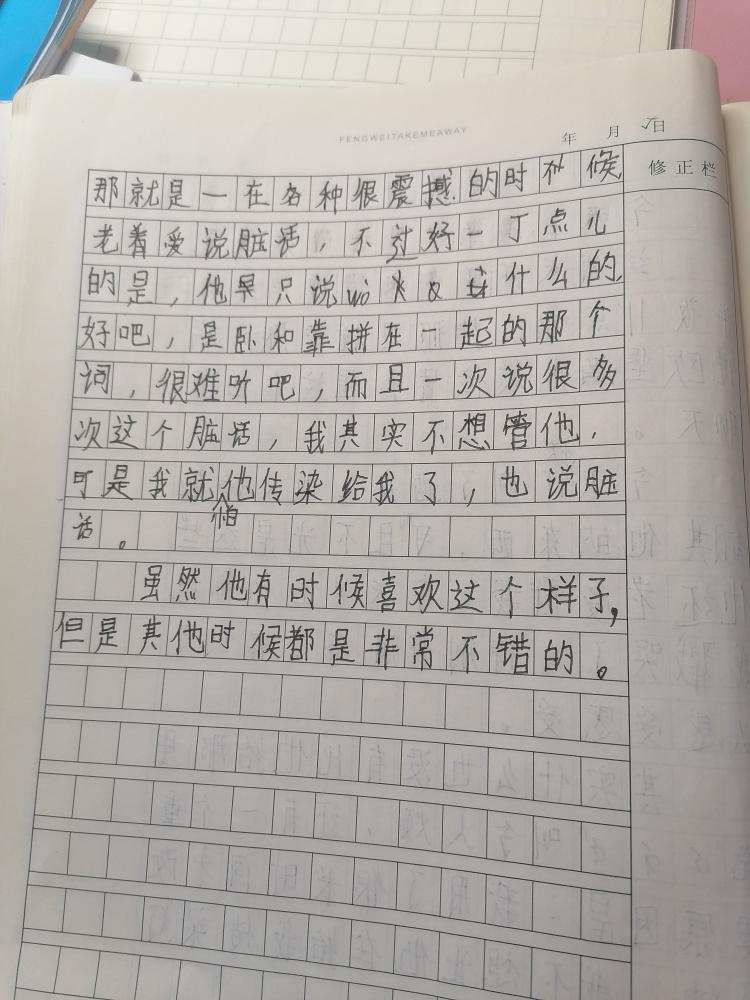 FENGWEITAKEMEAWAY
年 月 日
修正栏
那就是一在各种很震撼的时候
老着爱说脏话，不过好一丁点儿
的是，他早只说wo 什么的，
好吧，是卧和靠拼在一起的那个
词，很难听吧，而且一次说很多
次这个脏话，我其实不想管他，
可是我就怕他传染给我了，也说脏
话。
虽然他有时候喜欢这个样子，
但是其他时候都是非常不错的。